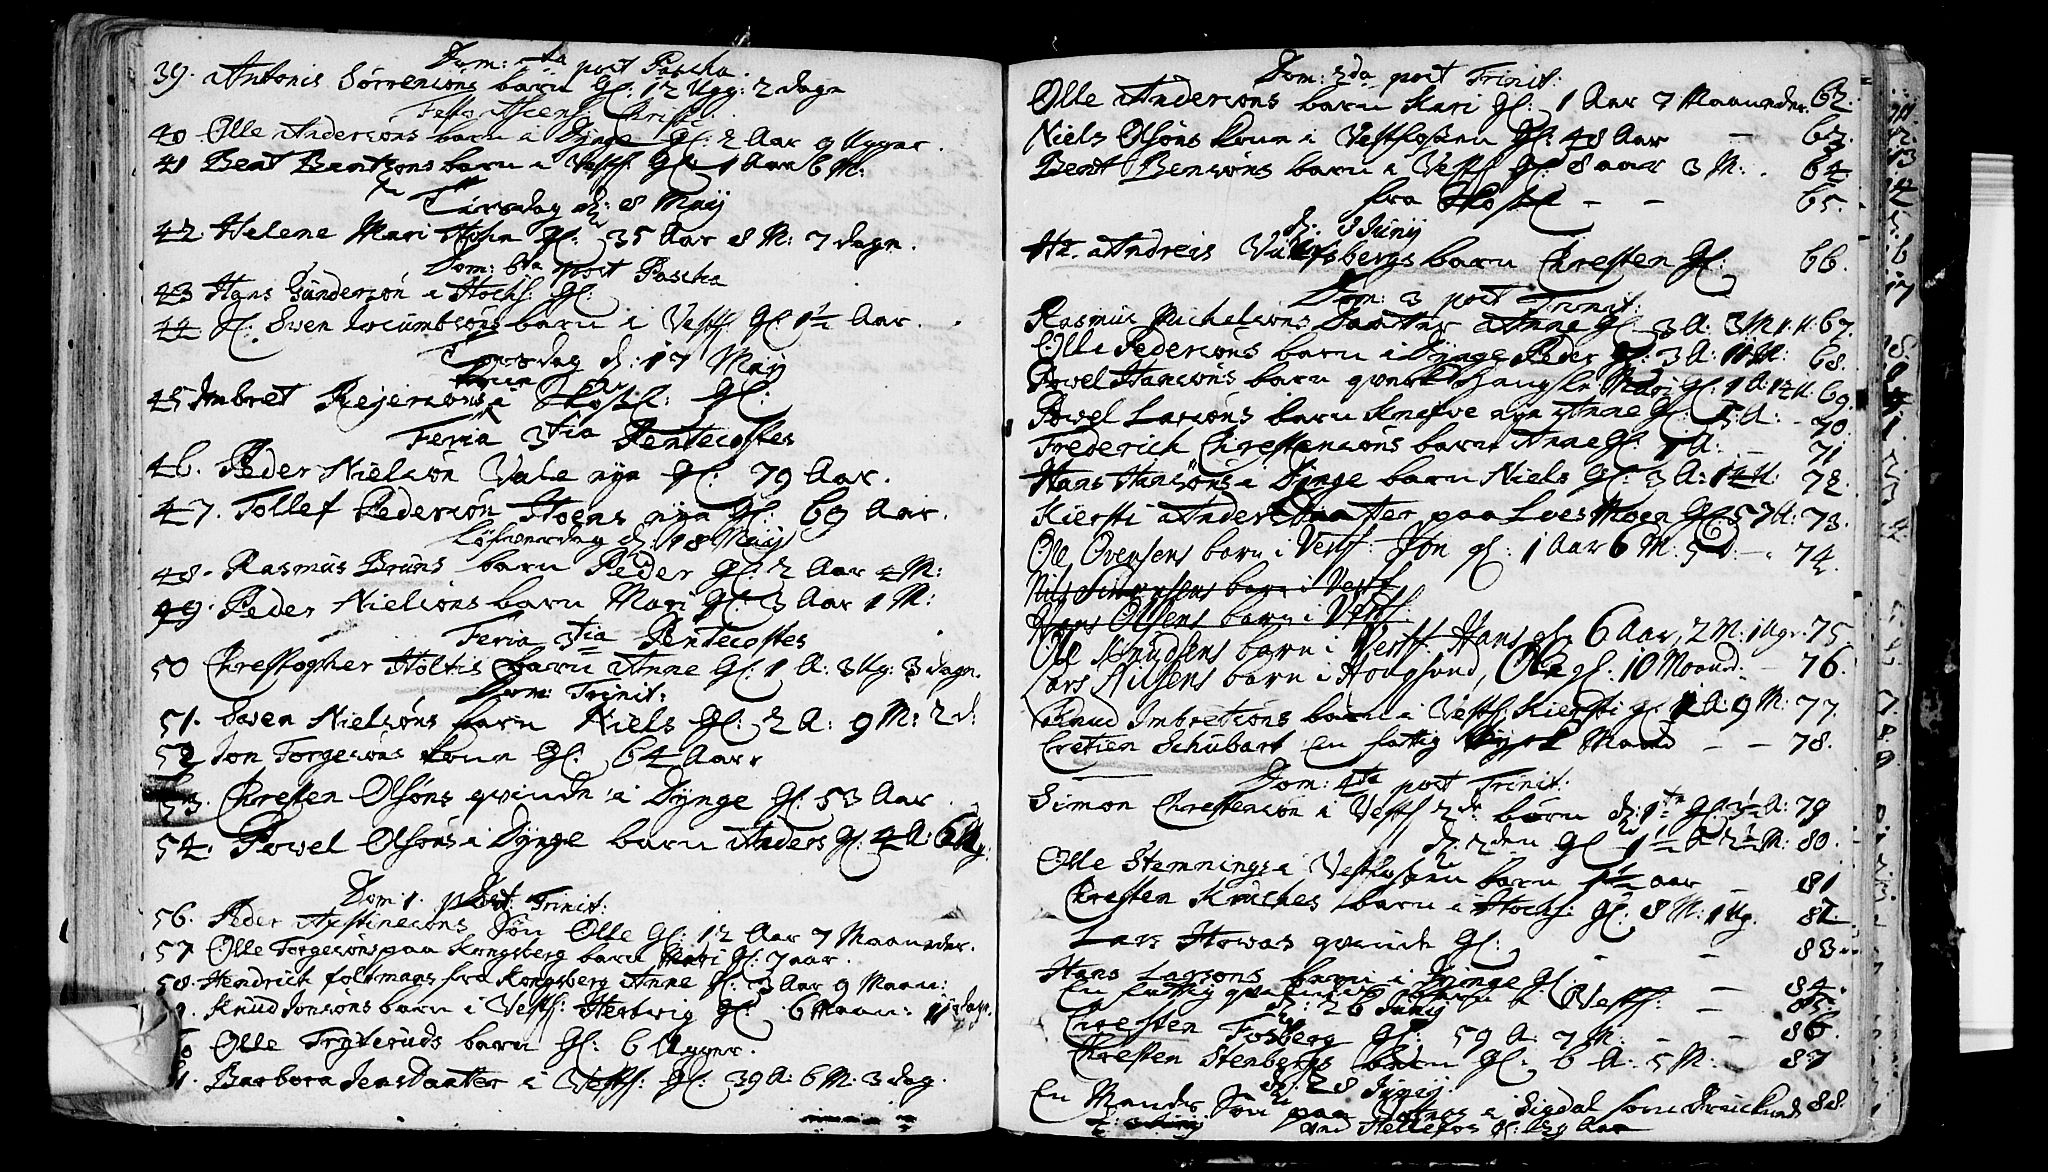 Dom: 5ta post Pascha.
39. Antonis Sörrensöns barn Gl: 12 Ugg: 2 dage
Festo Ascens Christi.
40. Olle Andersöns barn i Dynge Gl: 2 Aar 9 Ugger.
41 Bent Bentsöns barn i Vestf. Gl: 1 Aar 6 M:
Tirsdag d: 8 Maij
42. Helene Mari Gl: 35 Aar 8 M: 7 dage.
Dom: 6ta post Pascha
43 Hans Gundersön i Hochs: Gl:
44 Swen barn i Vestf. Gl: 1½ Aar.
Torsdag d: 17 Maij
45 Imbret Rejersöns kone i Gl:
Feria 3tia Pentecostes
46. Peder Nielsön Vale eje Gl: 79 Aar.
47. Tollef Pedersön Hoens eje Gl: 69 Aar.
Löfverdag d: 18 Maij
48. Rasmus Bruns barn Peder Gl: 2 Aar 4 M:
49. Peder Nielsöns barn Mari Gl: 3 Aar 1 M:
Feria 3tia Pentecostes
50 Chrestopher Holtis barn Anne Gl: 1 A: 3 Ug: 3 dage.
Dom: Trinit:
51. Swen Nielsöns barn Niels Gl: 2 A: 9 M: 2 d:
52 Jon Torgersöns konne Gl: 64 Aar
53. Chresten Olsöns qvinde i Dynge Gl: 53 Aar.
54. Powel Olsöns i Dynge barn Anders Gl: 4 A: 6 Ug:
Dom: 1. post: Trinit:
56. Peder Sön Olle Gl: 12 Aar 7 Maaneder.
57 Olle Torgersöns paa Kongsberg barn Mari Gl: 7 aar.
58. Hendrich foltmags fra Kongsberg Anne Gl: 3 Aar 9 Maan:
9. Knud Jonsöns barn i Vestf: Hertwig Gl: 6 Maan: 11 dage.
Olle Tryterud's barn Gl: 6 Ugger.
1. Barbora Jens Daatter i Vestf: Gl: 39 A: 6 M: 3 dag.
Dom: 2da post Trinit:
Olle Andersöns barn Kari Gl: 1 Aar 7 Maaneder 62.
Niels Olsöns kone i Vestfossen Gl: 48 Aar – 63.
Bent Bensöns barn i Vestf Gl: 8 aar 3 M: . 64
fra – – 65.
d: 3 Junij
Hr. Andreis barn Chresten Gl: 66.
Dom: 3 post Trinit:
Rasmus Michelsöns Daatter Anne Gl: 3 A: 3 M 1 U: 67.
Olle Pedersöns barn i Dynge Peder Gl: 3 A: 11 M: 68.
Powel Hansöns barn Gl: 1 A: 12 U: 69
Powel Larsöns barn eje Anne Gl: 5: A: – 70.
Frederich Chrestensöns barn Anne Gl: 1 A: – 71
Hans Hansöns i Dynge barn Niels Gl: 3 A: 14 U: 72.
Kiersti Anders Daatter paa Loes Moen Gl: 57 A: 73.
Ole Ovensens barn i Vestf: Jon gl: 1 Aar 6 M: 5 D – 74.
Nils Simonsens barn i Vestf
Hans Olsens barn i Vestf.
Ole Knudsens barn i Vestf. Hans gl. 6 Aar, 2 M: 1 Uge. 75.
Lars Nilsens barn i Hougsund, Ole gl. 10 Maand: – 76.
Knud Imbretsöns barn i Vestf: Kiersti gl: 1 A: 9 M: 77.
Cretien Schubart en fattig Mand – – 78.
Dom: 4ta post Trinit:
Simon Chrestensön i Vestf 2de börn d: 1te Gl: 3½ A: 79
d: 2den Gl 1½ A 2½ M: 80.
Olle Stemnings i Vestfossen barn 1½ aar – 81
Chresten Kuches barn i Hochs: Gl: 8 M: 1 Ug. 82.
Lars Howas qvinde Gl: – – 83
Hans Larsöns barn i Dynge Gl: – 84.
En fattig qvindes barn i Vestf: – 85.
d: 26 Junij
Chresten Fosberg Gl: 59 A: 7 M: – – 86.
Chresten Stenbergs barn Gl: 6 A: 5 M: – 87
d: 28 Junij
En Mands Sön paa i Sigdal som druchnede 88.
ved Hellefos gl: Aar